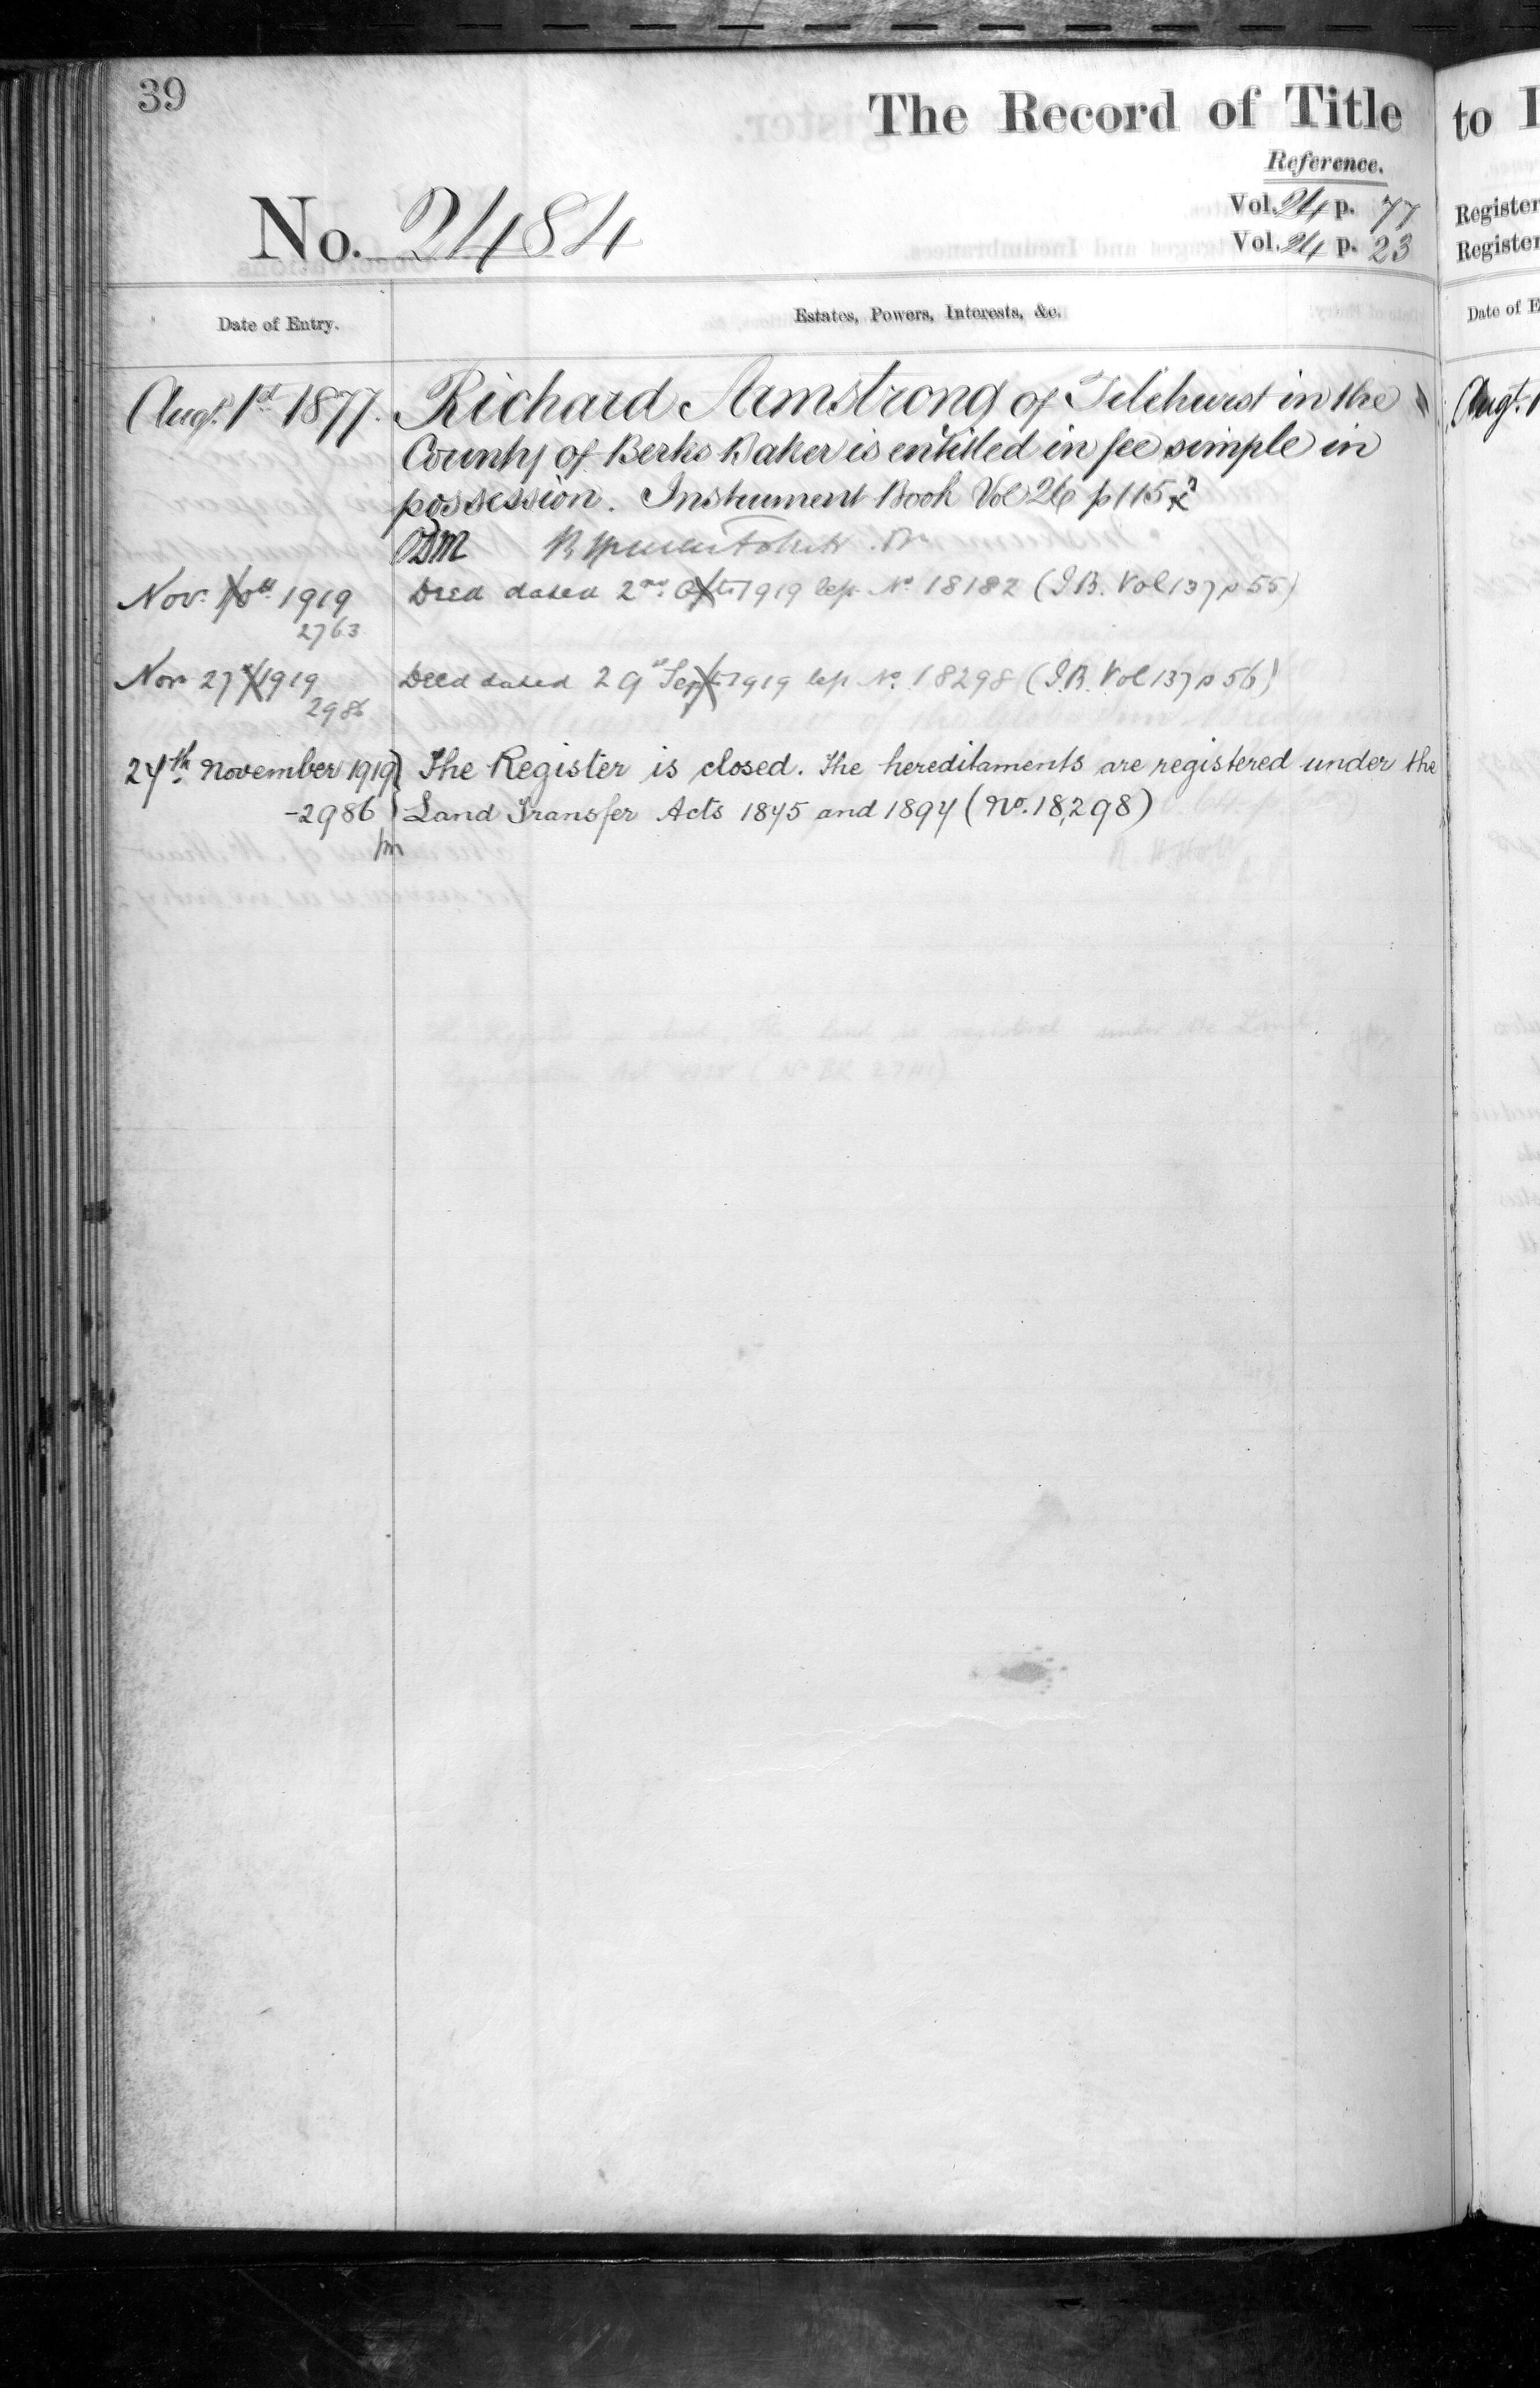 39
The Record of Title
Reference.
No. 2484
Vol. 24 p. 77
Vol. 24 p. 23
Date of Entry.
Estates, Powers, Interests, &c.
Augt. 1st 1877.
Richard Armstrong of Tilehurst in the
County of Berks Baker is entitled in fee simple in
possession. Instrument Book Vol 26 p 115
Nov. 10th 1919
2763
Deed dated 2nd Octr 1919 lep No 18182 (I.B. Vol 137 p 55)
Nov 27 1919
2986
Deed dated 29th Sept 1919 lep No. 18298 (I.B. Vol 137 p 56)
27th November 1919
-2986
The Register is closed. The hereditaments are registered under the
Land Transfer Acts 1875 and 1897 (No. 18,298)
to
Register
Register
Date of E
Augt. 1